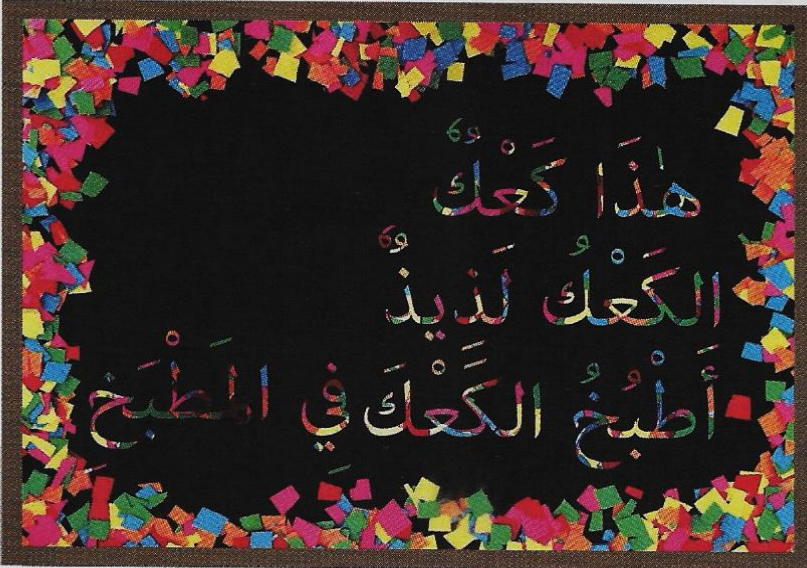 هٰذَا كَعْكٌ
الكَعْكُ لَذيذٌ
أَطْبُخُ الكَعْكَ في المَطْبَخِ